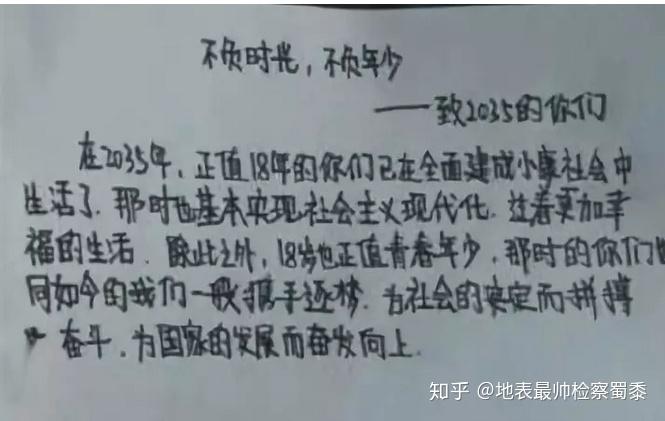 不负时光，不负年少
——致2035的你们
在2035年，正值18年的你们已在全面建成小康社会中
生活了．那时也基本实现社会主义现代化．过着更加幸
福的生活．除此之外，18岁也正值青春年少，那时的你们
同如今的我们一般携手逐梦．为社会的安定而拼搏
奋斗．为国家的发展而奋发向上．
知乎 @地表最帅检察蜀黍